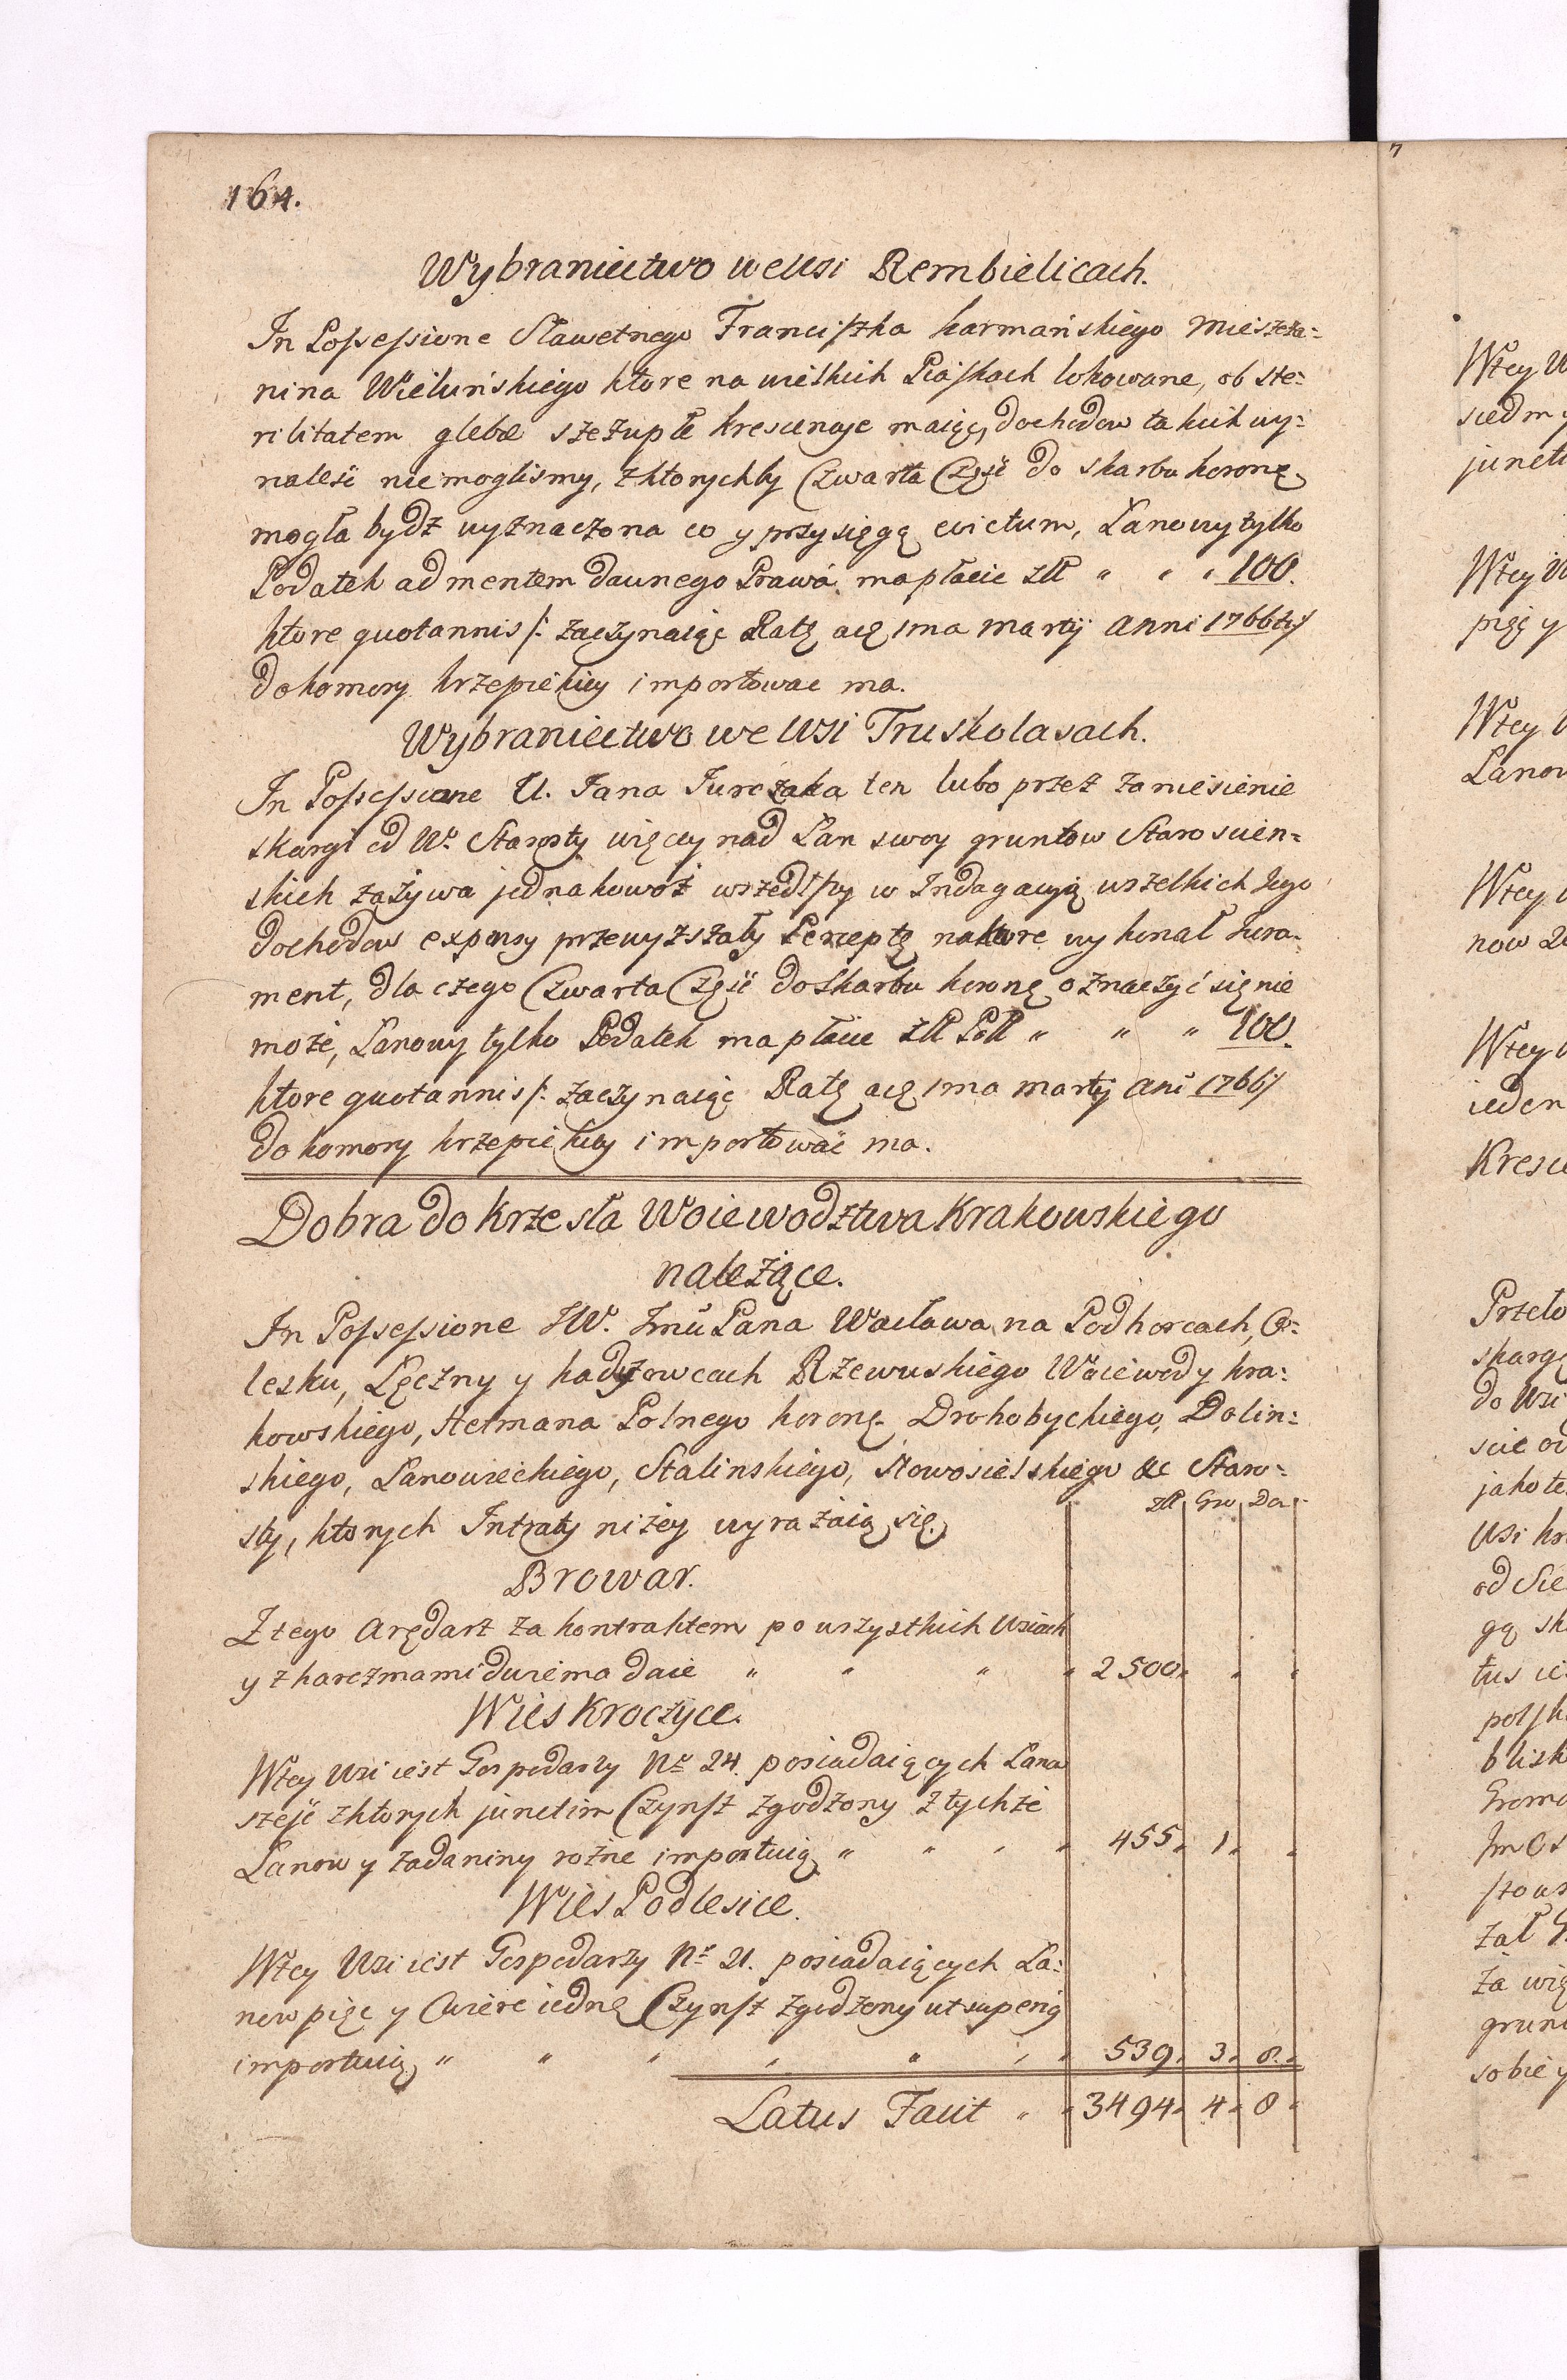 164.
Wybraniectwo we Wsi Rembielicach.
In Possessione Sławetnego Franciszka Karmańskiego Mieszcza=
nina Wieluńskiego ktore na wielkich Piaskach lokowane, ob ste=
rilitatem glebæ szczupłe krescencye maiąc, dochodow takich wy=
naleść niemogliśmy, z ktorychby Czwarta Część do Skarbu Koronę
mogła bydź wyznaczona co y przysięgą evictum, Łanowy tylko
Podatek ad mentem dawnego Prawa ma płacić złł " " " 100.
ktore quotannis /: zaczynaiąc Ratę a 1ma Martij Anni 1766ty/
do Komory Krzepickiey importowac ma.
Wybraniectwo we Wsi Truskolasach.
In Possessione U. Jana Jurczaka ten lubo przez zaniesienie
skargi od W. Starosty więcey nad Łan swoy gruntow Staroscien=
skich zażywa jednakowoż wszedłszy w Indagacyią wszelkich Jego
dochodow expensy przewyzszały Perceptę na ktore wykonał Jura=
ment, dla czego Czwarta Część do Skarbu Koronę oznaczyć się nie
może, Łanowy tylko Podatek ma płacić złł Poll " " " 100.
ktore quotannis /: zaczynaiąc Ratę a 1ma Martij Anî 1766/
do Komory Krzepickiey importować ma.
Dobra do Krzesła Woiewodztwa Krakowskiego
należące.
In Possessione JW. Jmći Pana Wacława na Podhorcach, O=
lesku, Łęczny y Kodyzowcach Rzewuskiego Woiewody Kra=
kowskiego, Hetmana Polnego Koronę Drohobyckiego, Dolin=
skiego, Łanowieckiego, Stalinskiego, Nowosielskiego &c Staro=
sty, ktorych Intraty niżey wyrażaią się. złł Gro Den
Browar.
Z tego Arędarz za kontraktem po wszystkich Wsiach
y z karczmami dwiema daie " " " " 2500 " "
Wieś Kroczyce.
W tey Wsi iest Gospodarzy No 24. posiadaiących Łanow
sześć z ktorych junctim Czynsz zgodzony z tychże
Łanow y za daniny rożne importuią " " " " 455 1 "
Wieś Podlesice.
W tey Wsi iest Gospodarzy No 21. posiadaiących Ła=
now pięć y Cwierć iednę Czynsz zgodzony ut supenę
importuią " " " " " " " 539 3 8
Latus Facit " " 3494 4 8